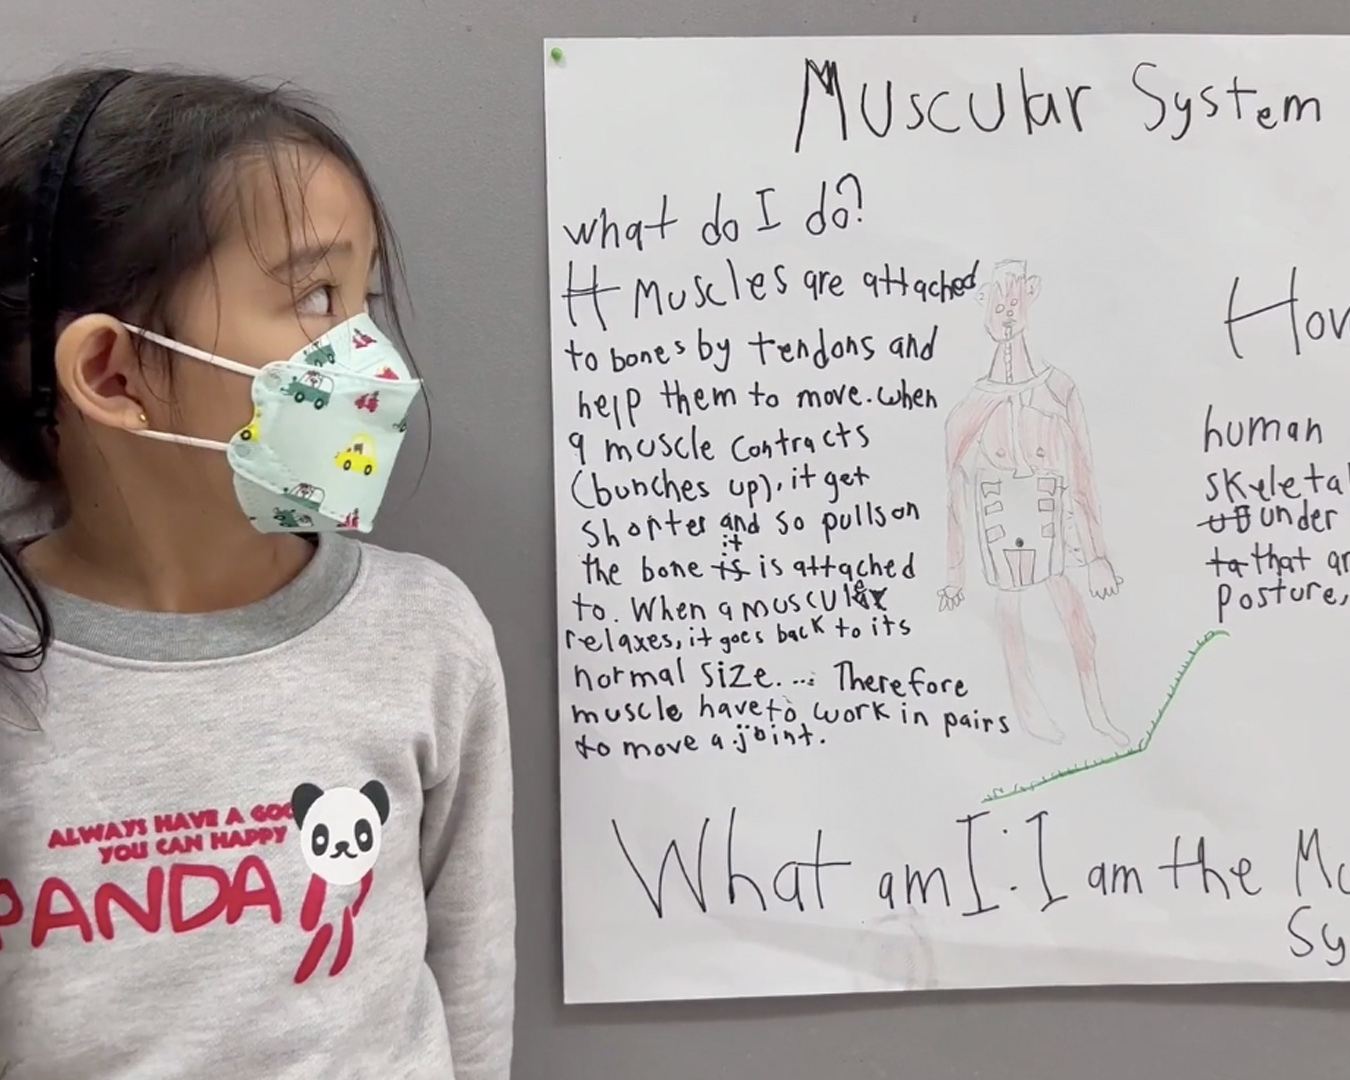 Muscular System
what do I do?
It Muscles are attached
to bones by tendons and
help them to move. when
a muscle contracts
(bunches up), it get
shorter and so pulls on
it
the bone is is attached
to. When a muscule
relaxes, it goes back to its
normal size. ... Therefore
muscle have to work in pairs
to move a joint.
How
human
skeletal
under
ta that ar
posture,
What am I. I am the Mu
Sy
ALWAYS HAVE A GOO
YOU CAN HAPPY
PANDA